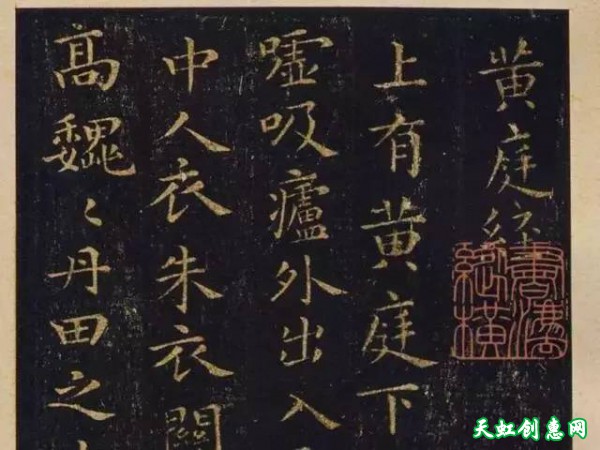 黄庭經
上有黄庭下
嘘吸廬外出入
中人衣朱衣關
高巍〻丹田之
天虹创惠网